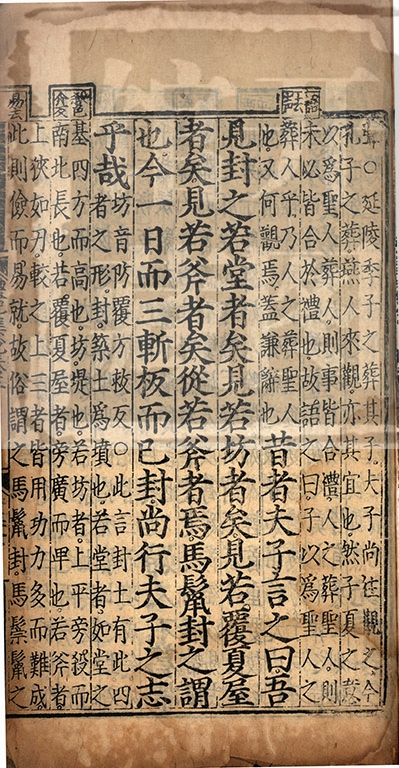 ○延陵季子之葬其子夫子尚往觀之今
孔子之葬燕人來觀亦其宜也然子夏之意
以爲聖人葬人則事皆合禮人之葬聖人則
未必皆合於禮也故語之曰子以爲聖人之
葬人乎乃人之葬聖人
也又何觀焉蓋謙辭也
昔者夫子言之曰吾
見封之若堂者矣見若坊者矣見若覆夏屋
者矣見若斧者矣從若斧者焉馬鬣封之謂
也今一日而三斬板而已封尚行夫子之志
乎哉
坊音防覆方救反○此言封土有此四
者之形封築土爲墳也若堂者如堂之
基四方而高也坊堤也若坊者上平旁殺而
南北長也若覆夏屋者旁廣而卑也若斧者
上狹如刃較之上三者皆用功力多而難成
此則儉而易就故俗謂之馬鬣封馬鬃鬣之